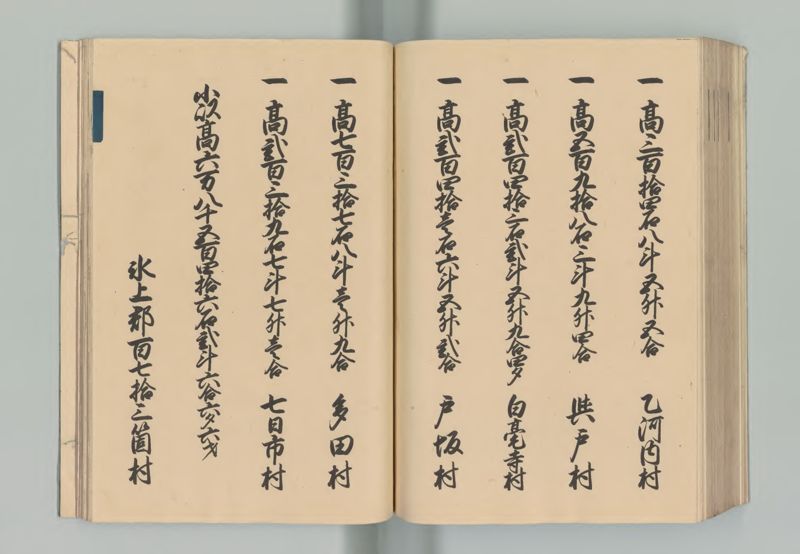 一 高三百拾四石八斗五升五合 乙河内村
一 高五百九拾八石三斗九升四合 與戸村
一 高弐百四拾三石弐斗五升九合四夕 白毫寺村
一 高弐百四拾壱石六斗五升弐合 戸坂村
一 高七百三拾七石八斗壱升九合 多田村
一 高弐百三拾九石七斗七升壱合 七日市村
小以高六万八千五百四拾六石弐斗六合六夕六才
氷上郡百七拾三箇村